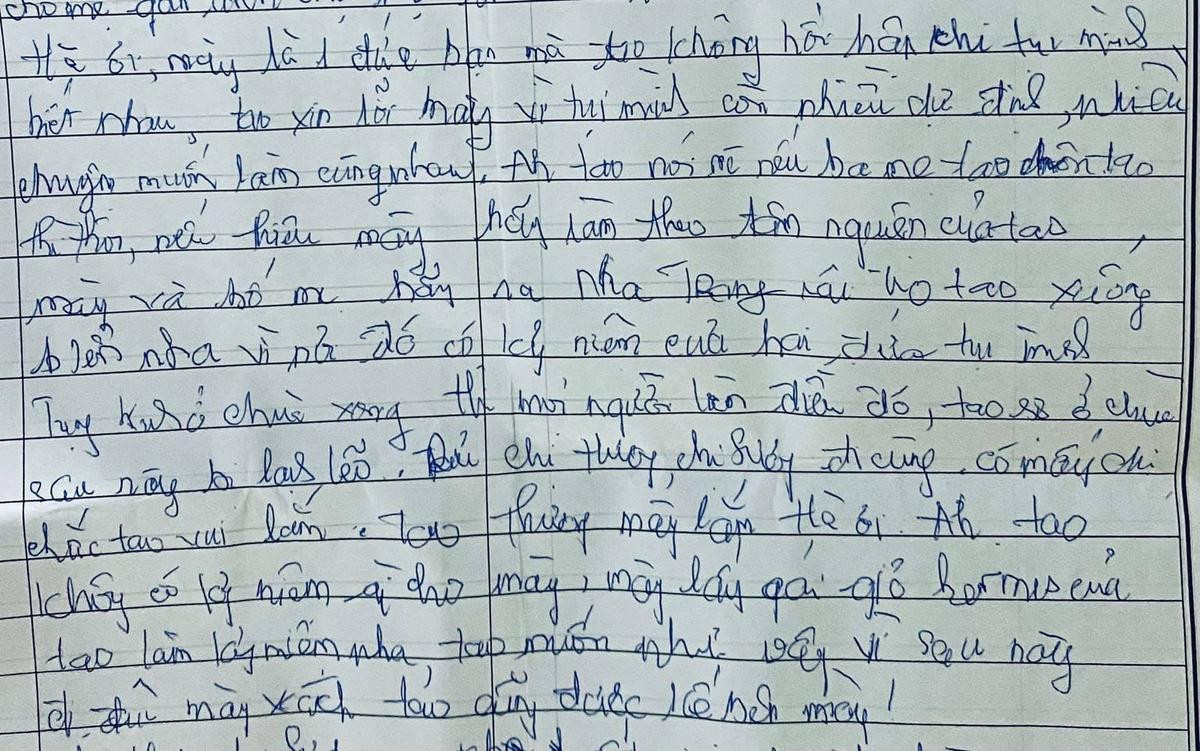 cho mẹ
Hà ơi, mày là 1 đứa bạn mà tao không hối hận khi tụi mình
biết nhau, tao xin lỗi mày vì tụi mình còn nhiều dự định, nhiều
chuyện muốn làm cùng nhau. Ah tao nói rồi nếu ba mẹ tao chôn tao
thì thôi, nếu thiêu mày hãy làm theo tâm nguyện của tao
mày và bố mẹ hãy ra nha Trang rãi tro tao xuống
biển nha vì nơi đó có kỷ niệm của hai đứa tụi mình
Tụng kinh ở chùa xong thì mọi người làm điều đó, tao sợ ở chùa
sau này bị lạnh lẽo. chị thúy, chị Suấy đi cùng. có mấy chị
chắc tao vui lắm. tao thương mày lắm Hà ơi. Ah tao
không có kỷ niệm gì cho mày, mày lấy gái giỏ hermes của
tao làm kỷ niệm nha, tao muốn như vậy vì sau này
đi đâu mày xách tao cũng được kế bên mày!